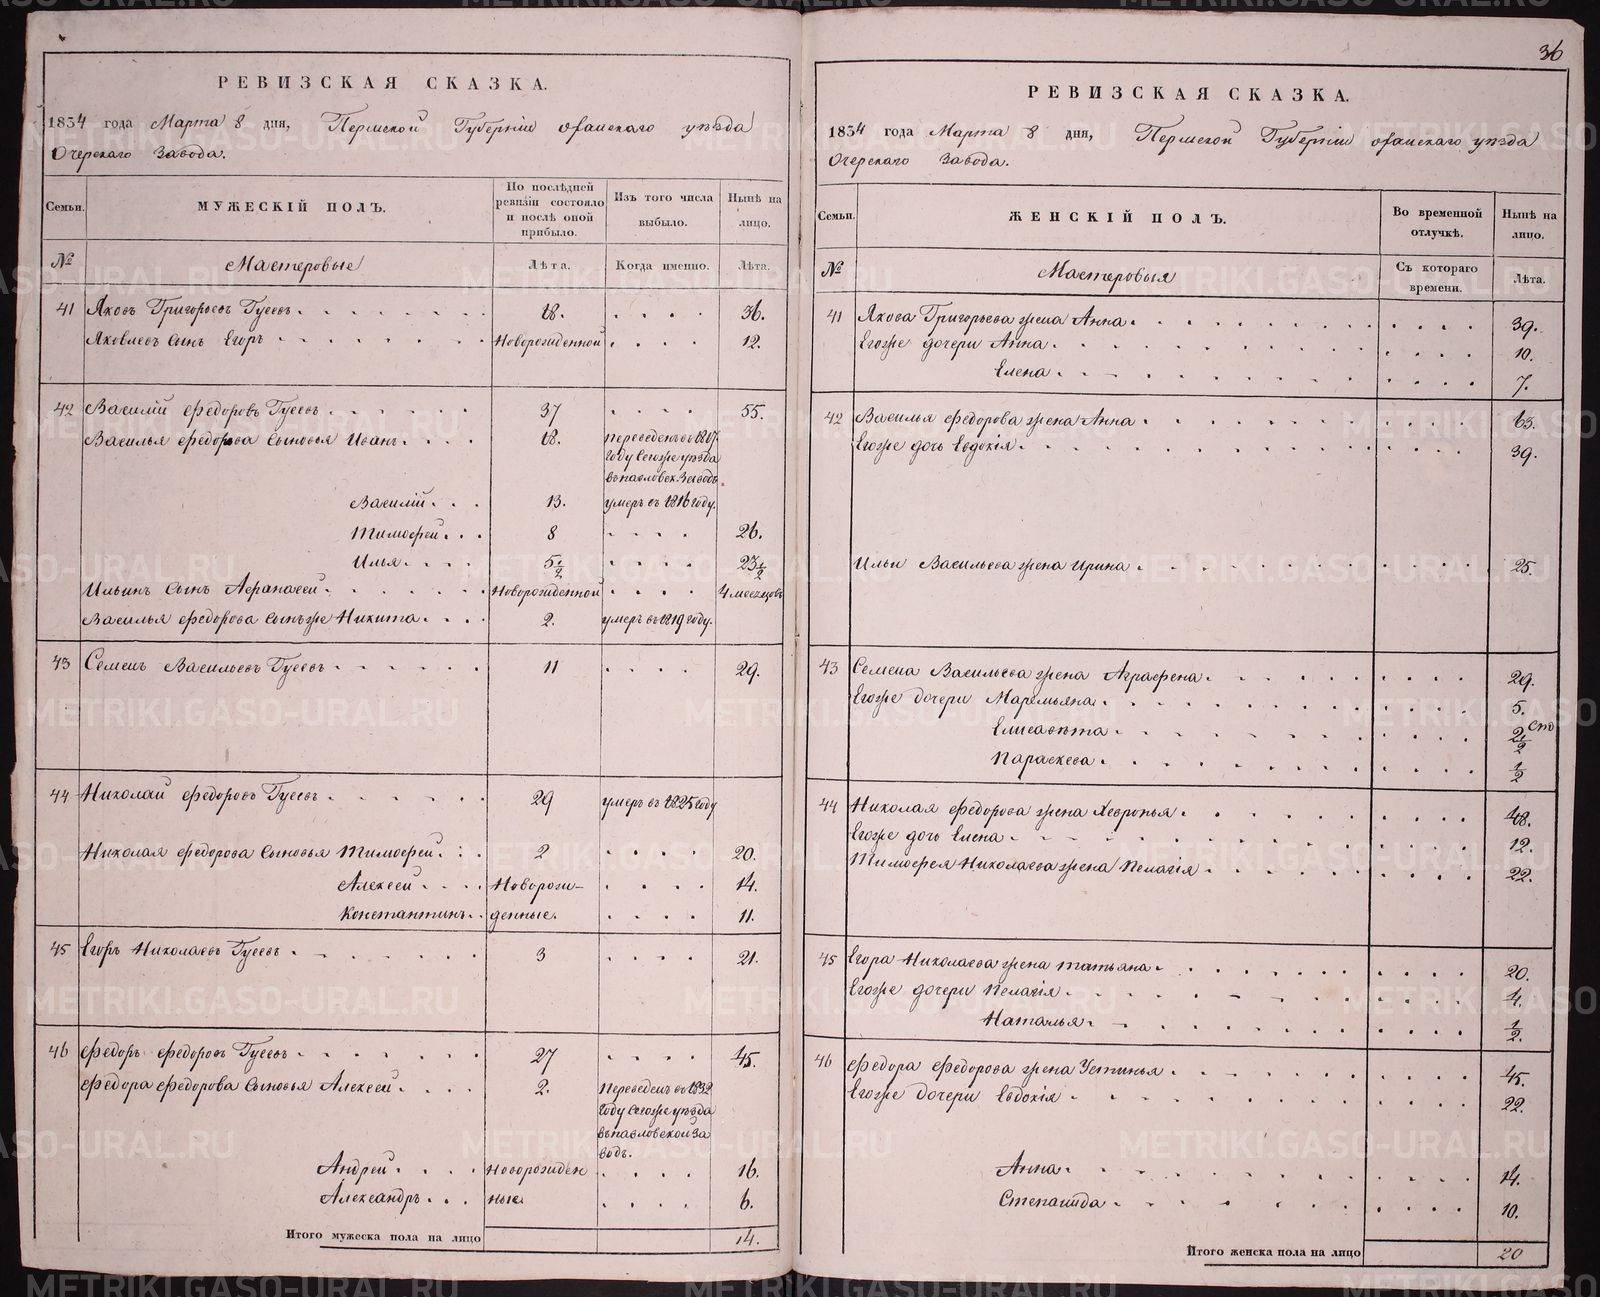 РЕВИЗСКАЯ СКАЗКА.
1834 года Марта 8 дня, Пермской Губерніи оханскаго уѣзда
Очерскаго Завода.
Семьи. МУЖЕСКІЙ ПОЛЪ. По послѣдней ревизіи состояло и послѣ оной прибыло. Изъ того числа выбыло. Нынѣ на лицо.
№ Мастеровые Лѣта. Когда именно. Лѣта.
41 Яковъ Григорьевъ Гусевъ 18. 36.
Яковлевъ сынъ Егоръ Новорожденной 12.
42 Василій Федоровъ Гусевъ 37 55.
Василья Федорова сыновья Иванъ 18. Переведенъ в 1807.
году Сегоже уѣзда
въ павловск. Заводъ
Василій 13. умеръ въ 1816 году.
Тимофей 8 26.
Илья 5 1/2 23 1/2
Ильинъ сынъ Афанасей Новорожденной 4 месяцовъ
Василья Федорова сынъже Никита 2. умеръ въ 1819 году.
43 Семенъ Васильевъ Гусевъ 11 29.
44 Николай Федоровъ Гусевъ 29 умеръ въ 1825 году
Николая Федорова сыновья Тимофей 2 20.
Алексей Новорож- 14.
Константинъ денные. 11.
45 Егоръ Николаевъ Гусевъ 3 21.
46 Федоръ Федоровъ Гусевъ 27 45.
Федора Федорова сыновья Алексей 2. Переведенъ в 1832
году Сегоже уѣзда
въ павловской за
водъ.
Андрей Новорожден 16.
Александръ ные 6.
Итого мужеска пола на лицо 14.
36
РЕВИЗСКАЯ СКАЗКА.
1834 года Марта 8 дня, Пермской Губерніи оханскаго уѣзда
Очерскаго Завода.
Семьи. ЖЕНСКІЙ ПОЛЪ. Во временной отлучкѣ. Нынѣ на лицо.
№ Мастеровыя Съ котораго времени. Лѣта.
41 Якова Григорьева жена Анна 39.
Егоже дочери Анна 10.
Елена 7.
42 Василья Федорова жена Анна 63.
Егоже дочь Евдокія 39.
Ильи Васильева жена Ирина 25.
43 Семена Васильева жена Аграфена 29.
Егоже дочери Маремьяна 5.
Елисавѣта 2 1/2
Параскева 1/2
44 Николая Федорова жена Хевронья 48.
Егоже дочь Елена 12.
Тимофея Николаева жена Пелагія 22.
45 Егора Николаева жена Татьяна 20.
Егоже дочери Пелагія 4.
Наталья 1/2.
46 Федора Федорова жена Устинья 45.
Егоже дочери Евдокія 22.
Анна 14.
Степанида 10.
Итого женска пола на лицо 20
METRIKI.GASO-URAL.RU